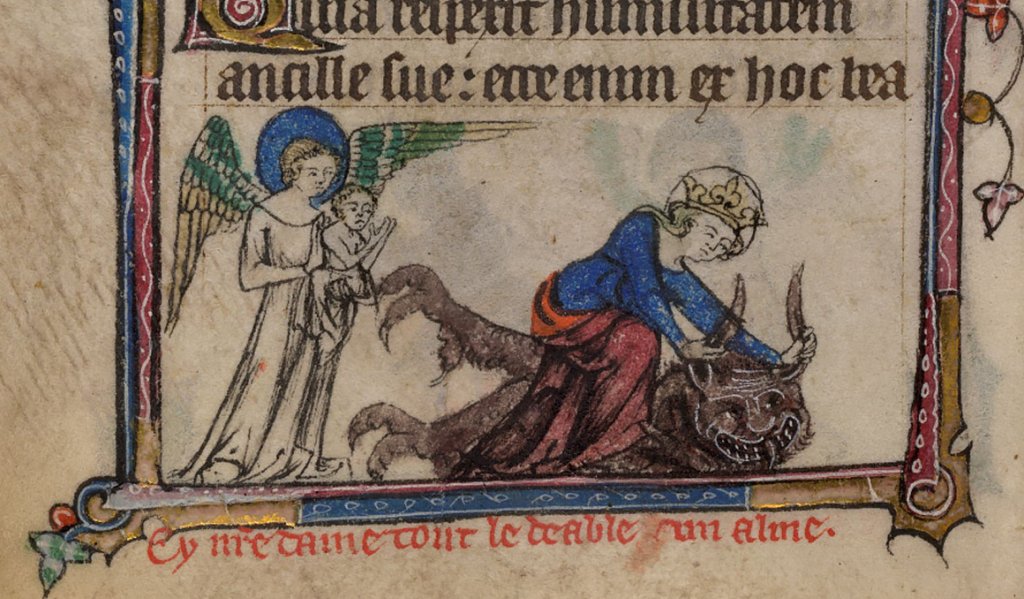 Quia respexit humilitatem
ancille sue: ecce enim ex hoc bea
Cy nre dame tout le deable un alme.